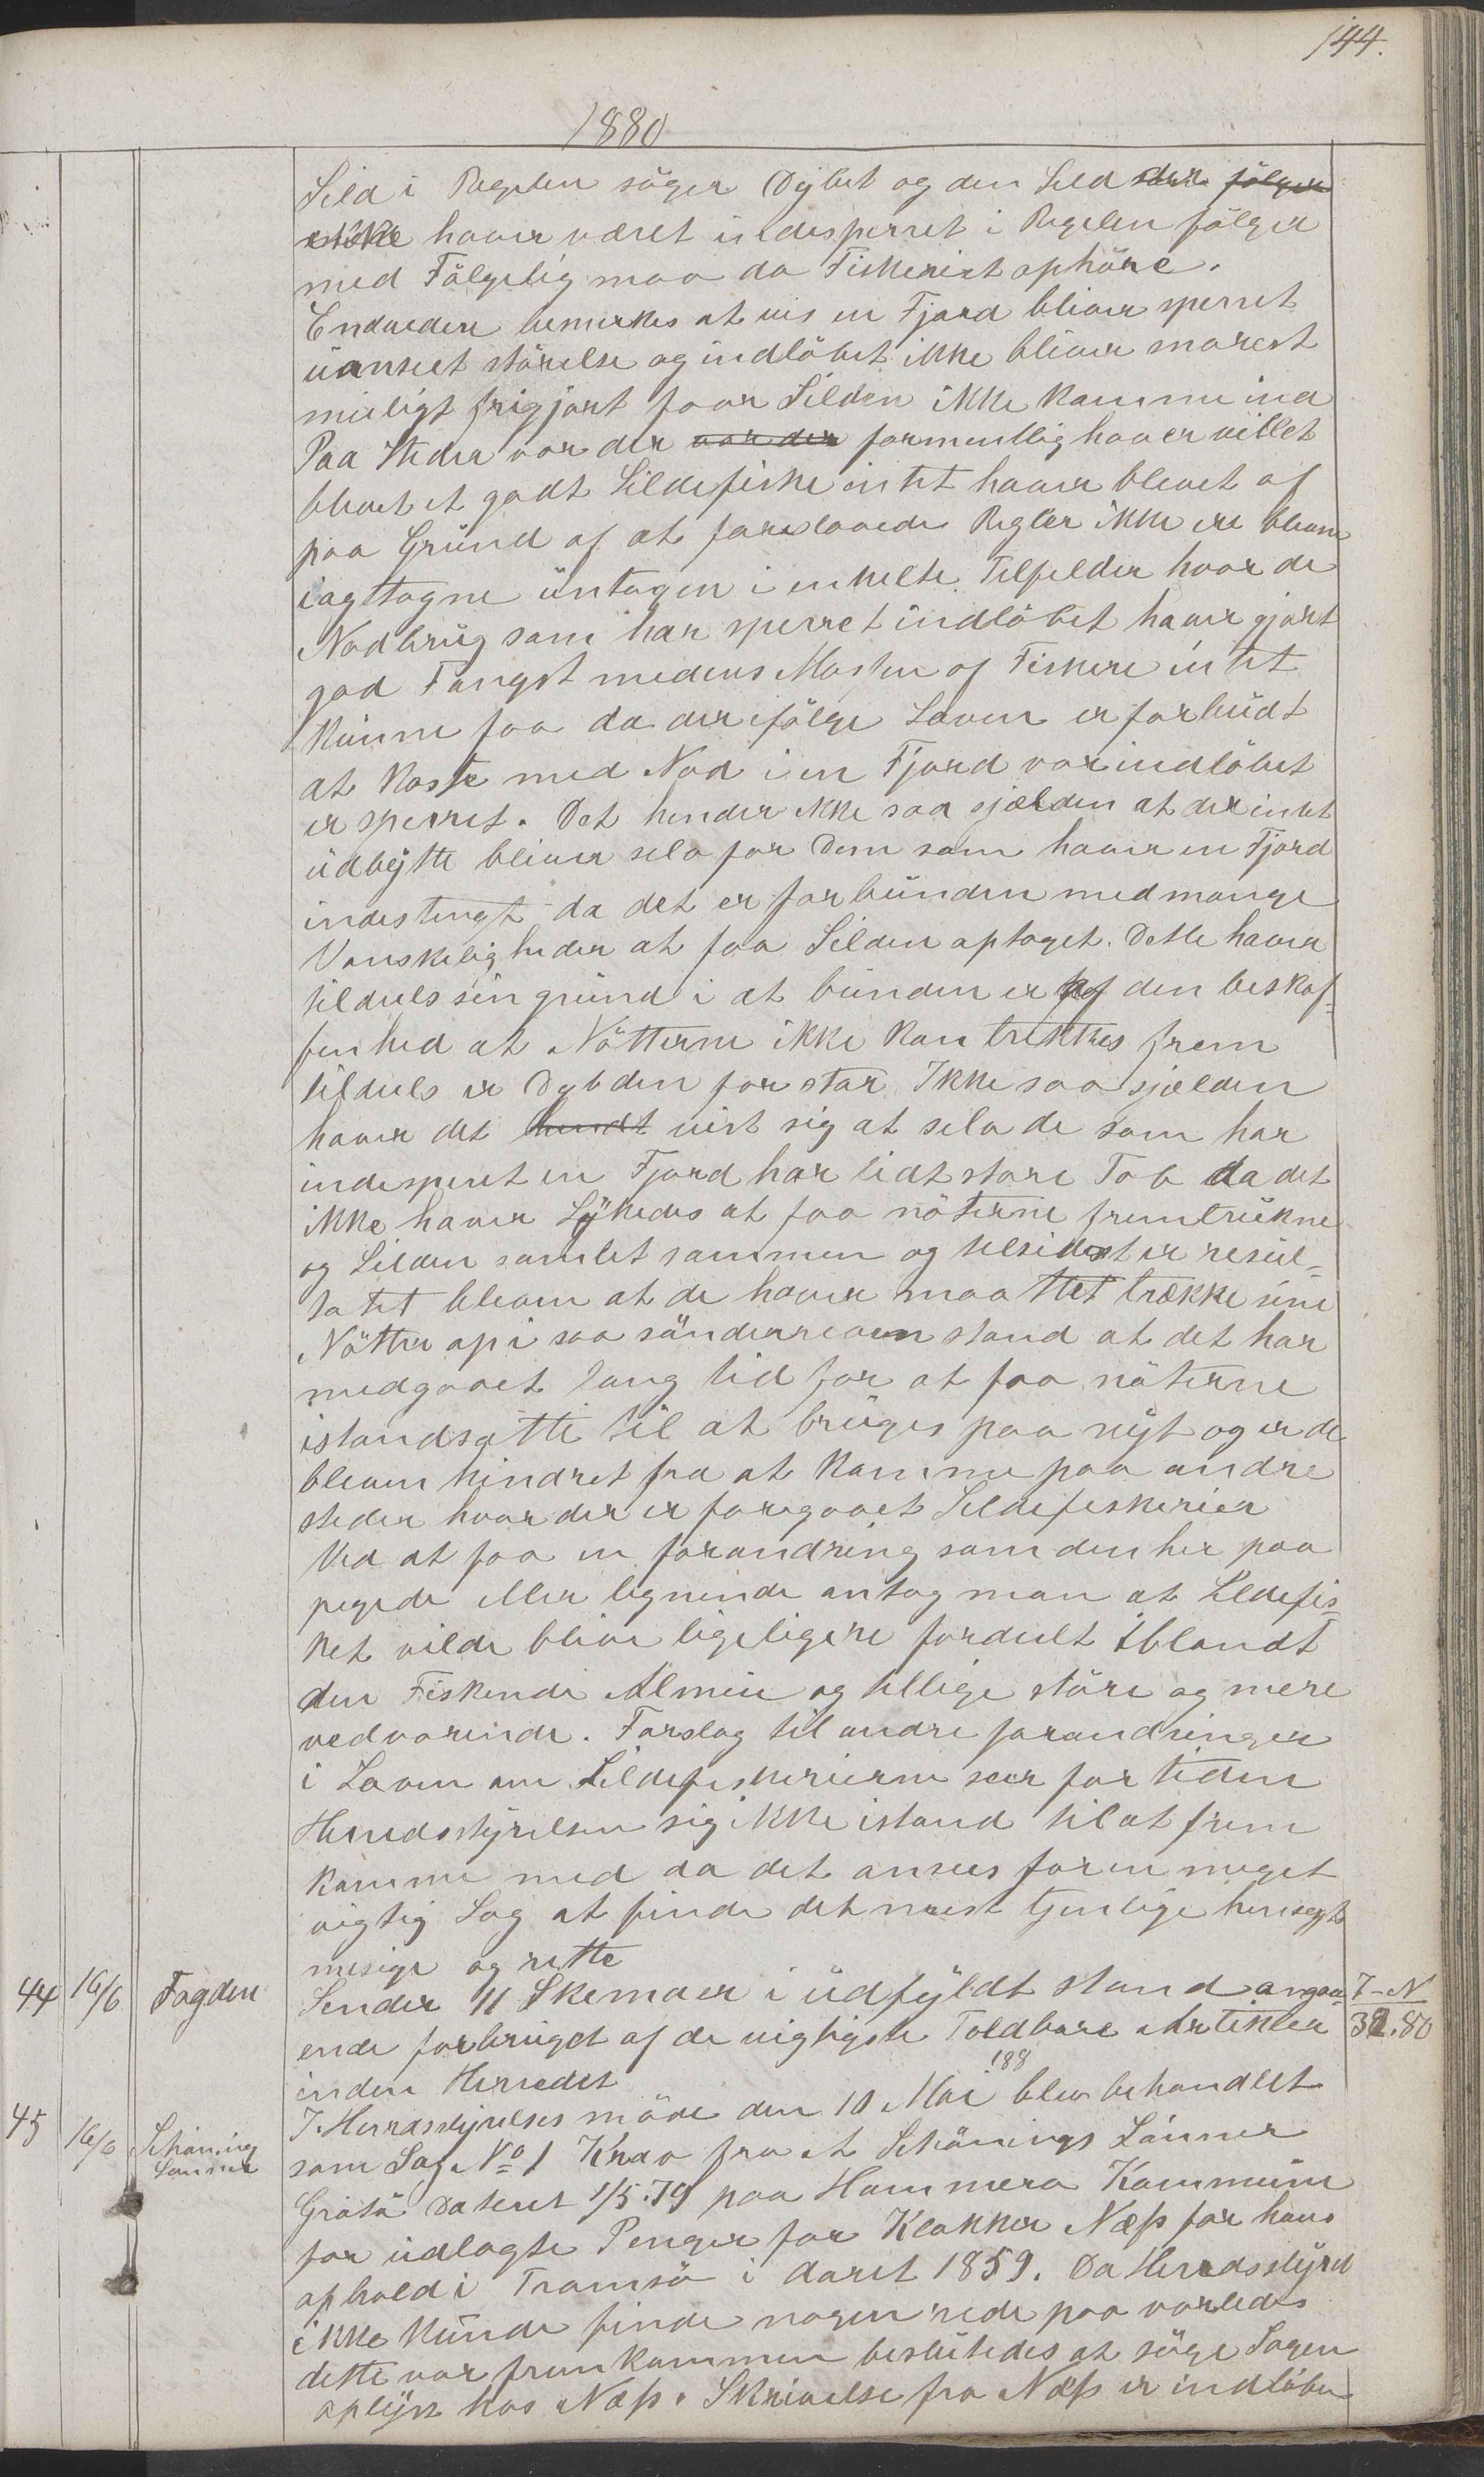 144.
1880
Sild i Regelen söger Dybet og den Sild der fölger
ikke haver været indesperret i Regelen fölger
med Fölgelig maa da Fiskeriet ophöre.
Endvedere bemerkes at vis en Fjord bliver sperret
uanseet störelse og indlöbet ikke bliver snarest
muligt frigjort faar Silden ikke komme ind
Paa Steder vor der vor der formentlig haver villet
blevet et godt Sildefiske intet haver blevet af
paa Grund af at foreslaaede Regler ikke ere blevne
iagttagne untagen i enkelte Tilfelder hvor de
Nodbrug som har sperret indlöbet haver gjort
god Fangst medens Massen af Fiskere intet
kunne faa da der ifölge Loven er forbudt
at kaste med Nod i en Fjord vor indlöbet
er sperret. Det hender ikke saa sjælden at der intet
udbytte bliver selv for Dem som haver en Fjord
indestengt da det er forbunden med mange
Vanskeligheder at faa Silden optaget. Dette haver
tildels sin grund i at bunden er af den beskaf-
fenhed at Nötterne ikke kan trekkes frem
tildels er Dybden for stor. Ikke saa sjælden
haver det hendt vist sig at selv de som har
indesperet en Fjord har lidt store Tab da det
ikke haver Lykedes at faa nöterne fremtrukne
og Silden samlet sammen og tilsidst er resul-
tatet bleven at de haver maattet trække sine
Nötter op i saa sönderreven stand at det har
medgaaet lang tid for at faa nöterne
istandsatte til at bruges paa nyt og er de
bleven hindret fra at komme paa andre
steder hvor der er foregaaet Sildefiskerier
Ved at faa en forandring som den her paa
pegede eller lignende antog man at Sildefis-
ket vilde blive ligeligere fordeelt iblandt
den Fiskende Almeu og tillige störe og mere
vedvarende. Forslag til andre forandringer
i Loven om Sildefiskerierne seer for tiden
Herredsstyrelsen sig ikke istand til at frem
komme med da det ansees for en meget
vigtig Sag at finde det mest tjenlige hensegt
mesige og rette
44 16/6 Fogden Sender 11 Skemaer i udfyldt stand angaa- J-N
ende forbruget af de vigtigste Toldbare Artikler 32.80
inden Herredet
45 16/6 Schöning Lanner I Herredsstyrelses möde den 10 Mai 188 blev behandlet
som Sag No 1 Krav fra A Schönings Lanner
Grötö Dateret 1/5.79 paa Hammerø Kommune
for udlagte Penger for Klokker Næss for hans
ophold i Tromsö i Aaret 1859. Da Herredsstyrel
ikke kunde finde nogen rede paa vorledes
dette var fremkommen beslutedes at söge Sagen
oplyst hos Næss. Skrivelse fra Næss er indlöben